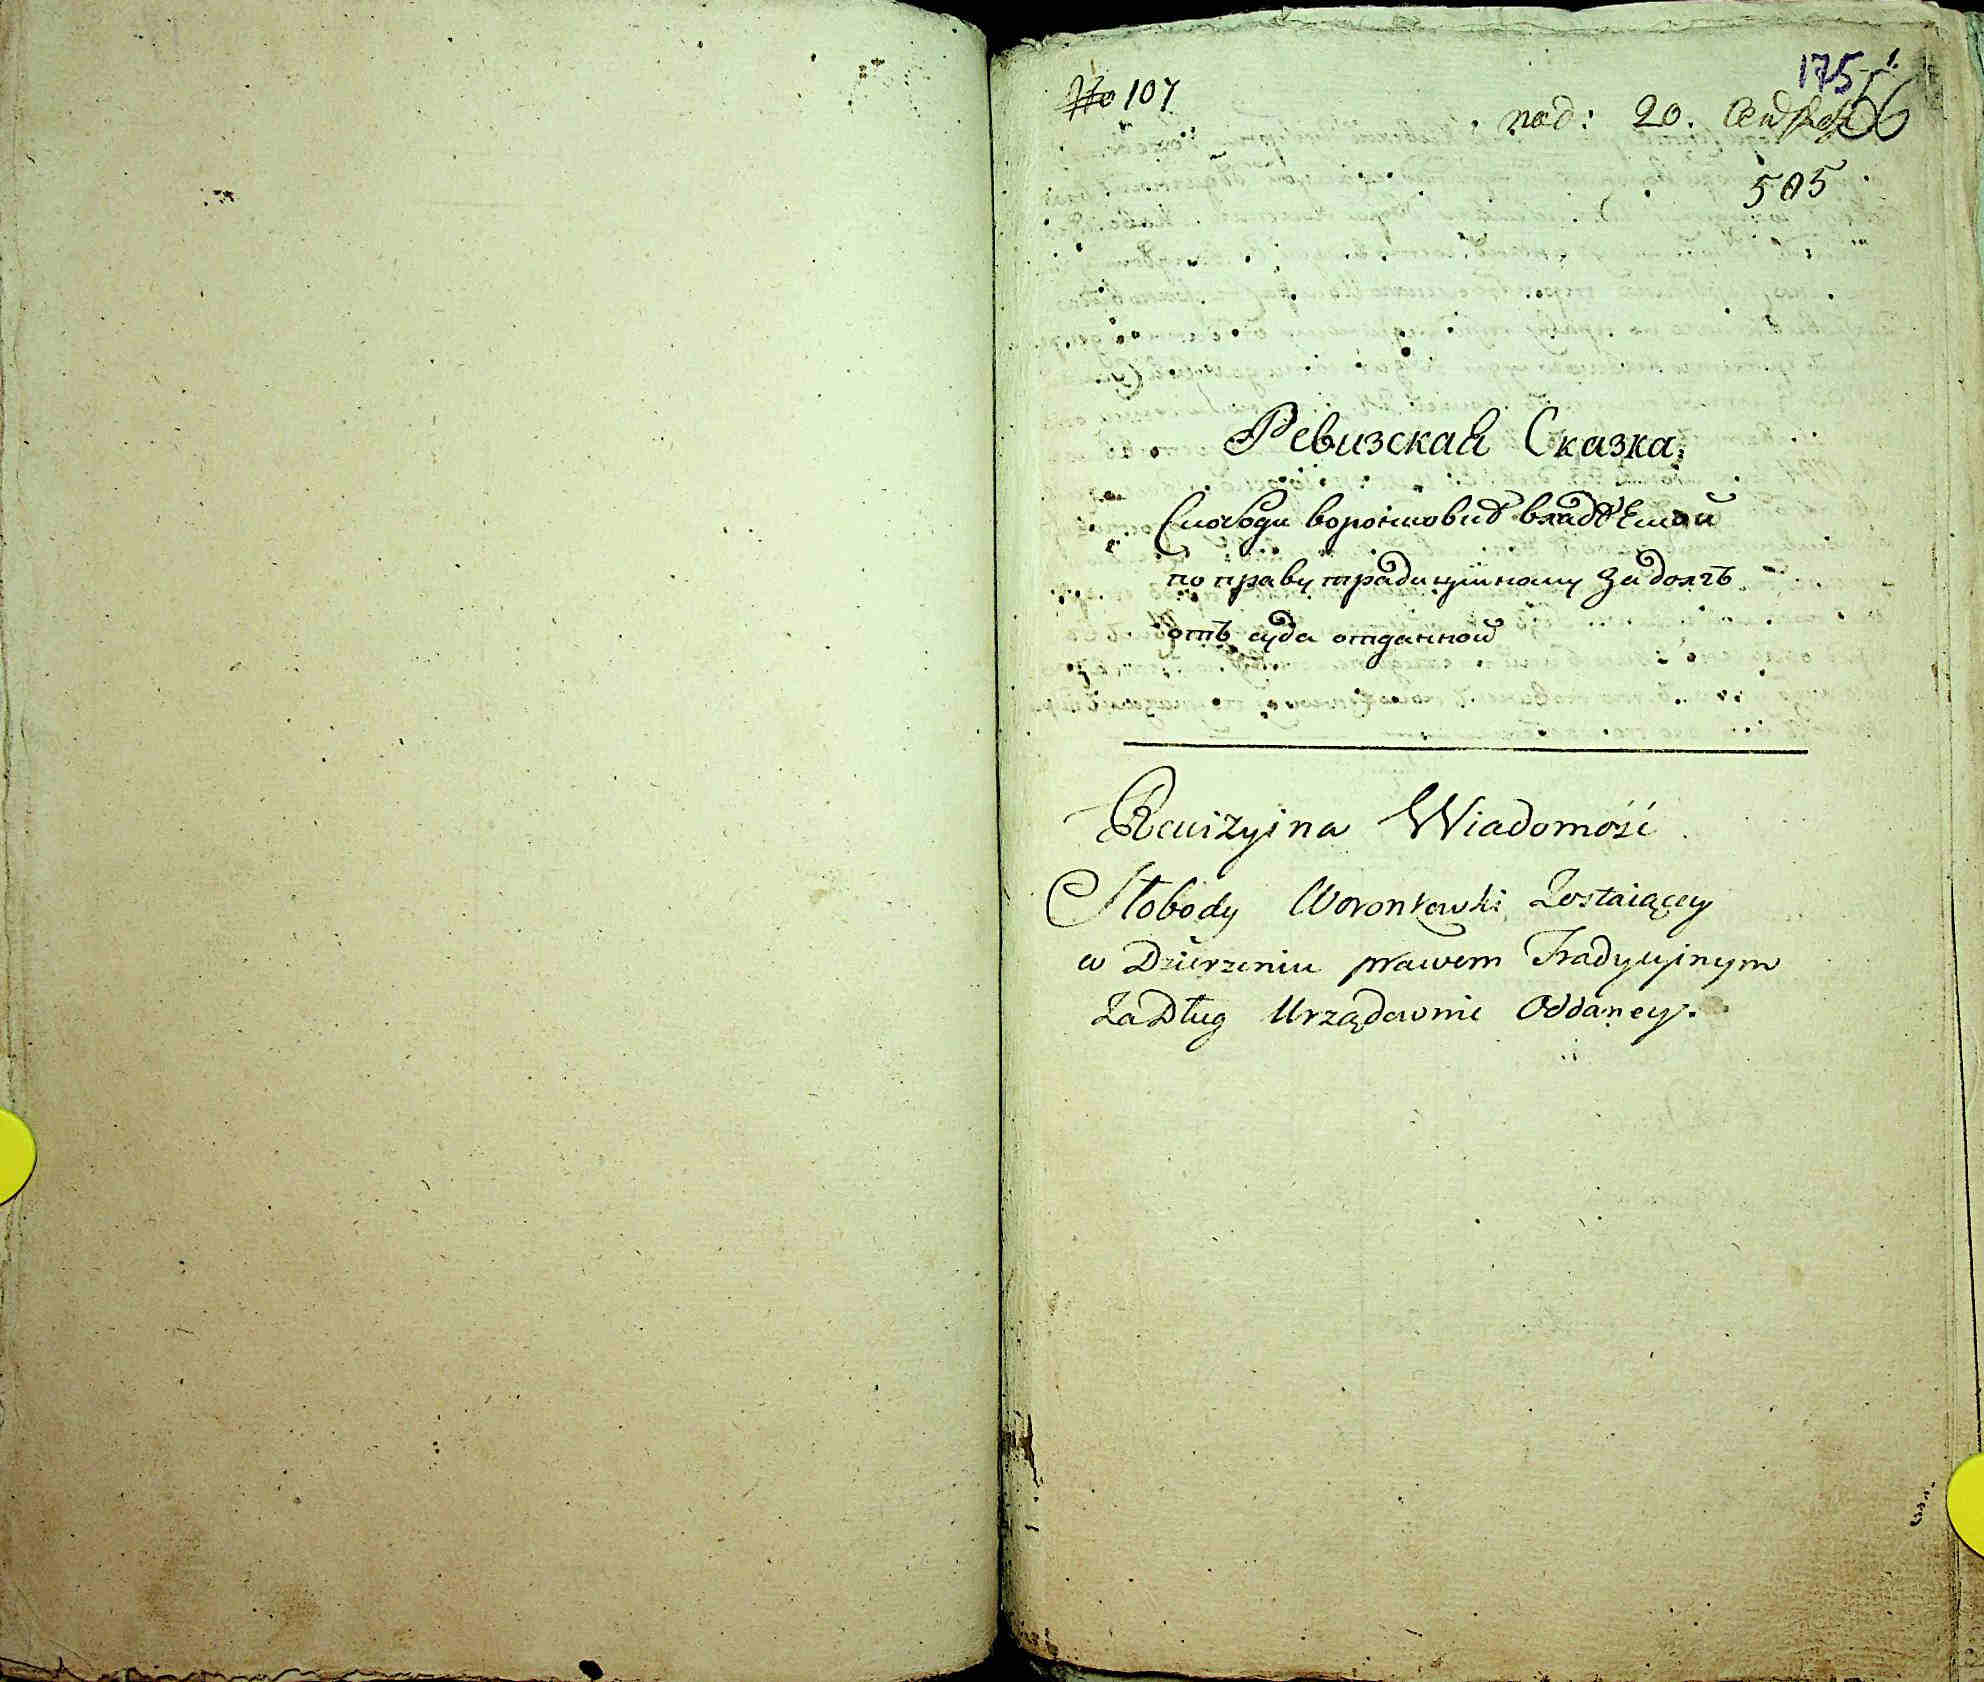 No 107
175
56
под: 20.
505
Ревизская Сказка
Слободи воронковиб владѣемой
по праву традицийному за долгъ
отъ суда отданной
Rewizyina Wiadomość
Słobody Woronkowki Zostaiącey
w Dzierzeniu prawem Tradycyinym
Za Dług Urządownie Oddaney.